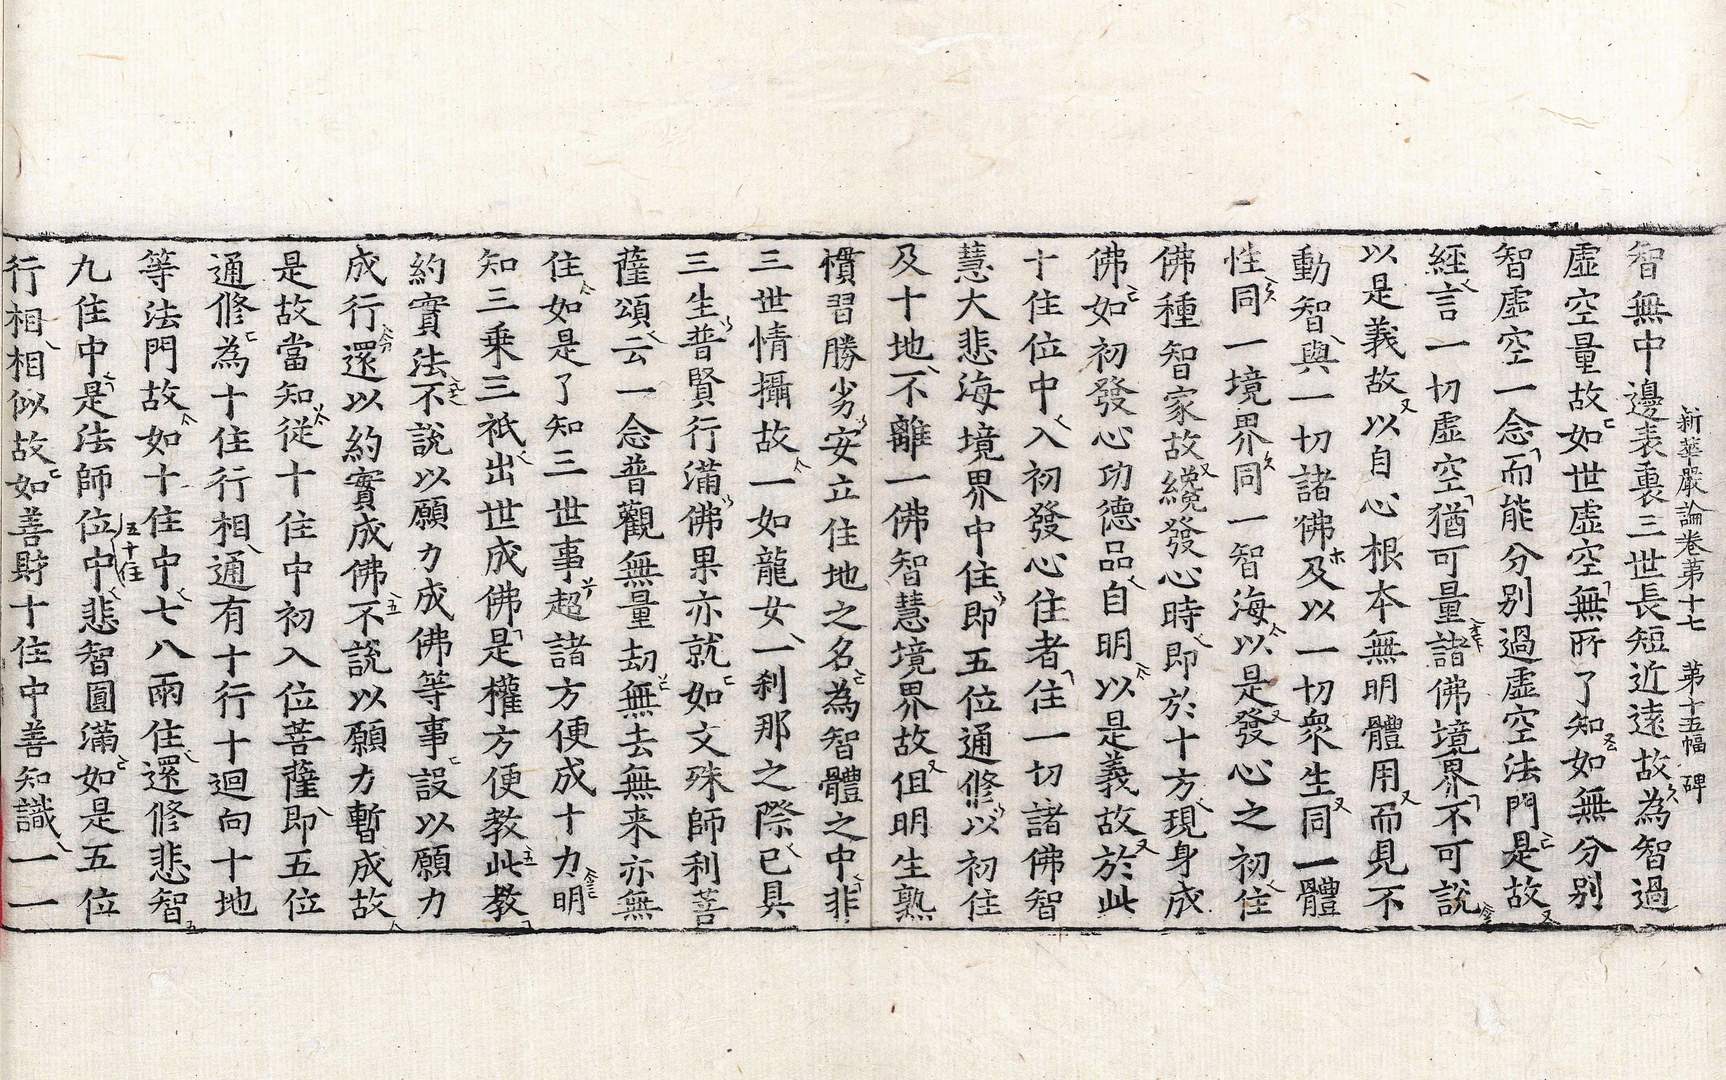 新華嚴論卷第十七　第十五幅　碑
智無中邊表裏三世長短近遠故為智過
虛空量故如世虛空無所了知如無分別
智虛空一念而能分別過虛空法門是故
經言一切虛空猶可量諸佛境界不可說
以是義故以自心根本無明體用而見不
動智與一切諸佛及以一切衆生同一體
性同一境界同一智海以是發心之初住
佛種智家故纔發心時即於十方現身成
佛如初發心功德品自明以是義故於此
十住位中入初發心住者住一切諸佛智
慧大悲海境界中住即五位通修以初住
及十地不離一佛智慧境界故但明生熟
慣習勝劣安立住地之名為智體之中非
三世情攝故一如龍女一刹那之際已具
三生普賢行滿佛果亦就如文殊師利菩
薩頌云一念普觀無量劫無去無来亦無
住如是了知三世事超諸方便成十力明
知三乗三祇出世成佛是權方便教此教
約實法不說以願力成佛等事設以願力
成行還以約實成佛不說以願力暫成故
是故當知從十住中初入位菩薩即五位
通修為十住行相通有十行十迴向十地
等法門故如十住中七八兩住還修悲智
九住中是法師位中悲智圓滿如是五位
五十住
行相相似故如善財十住中善知識一一